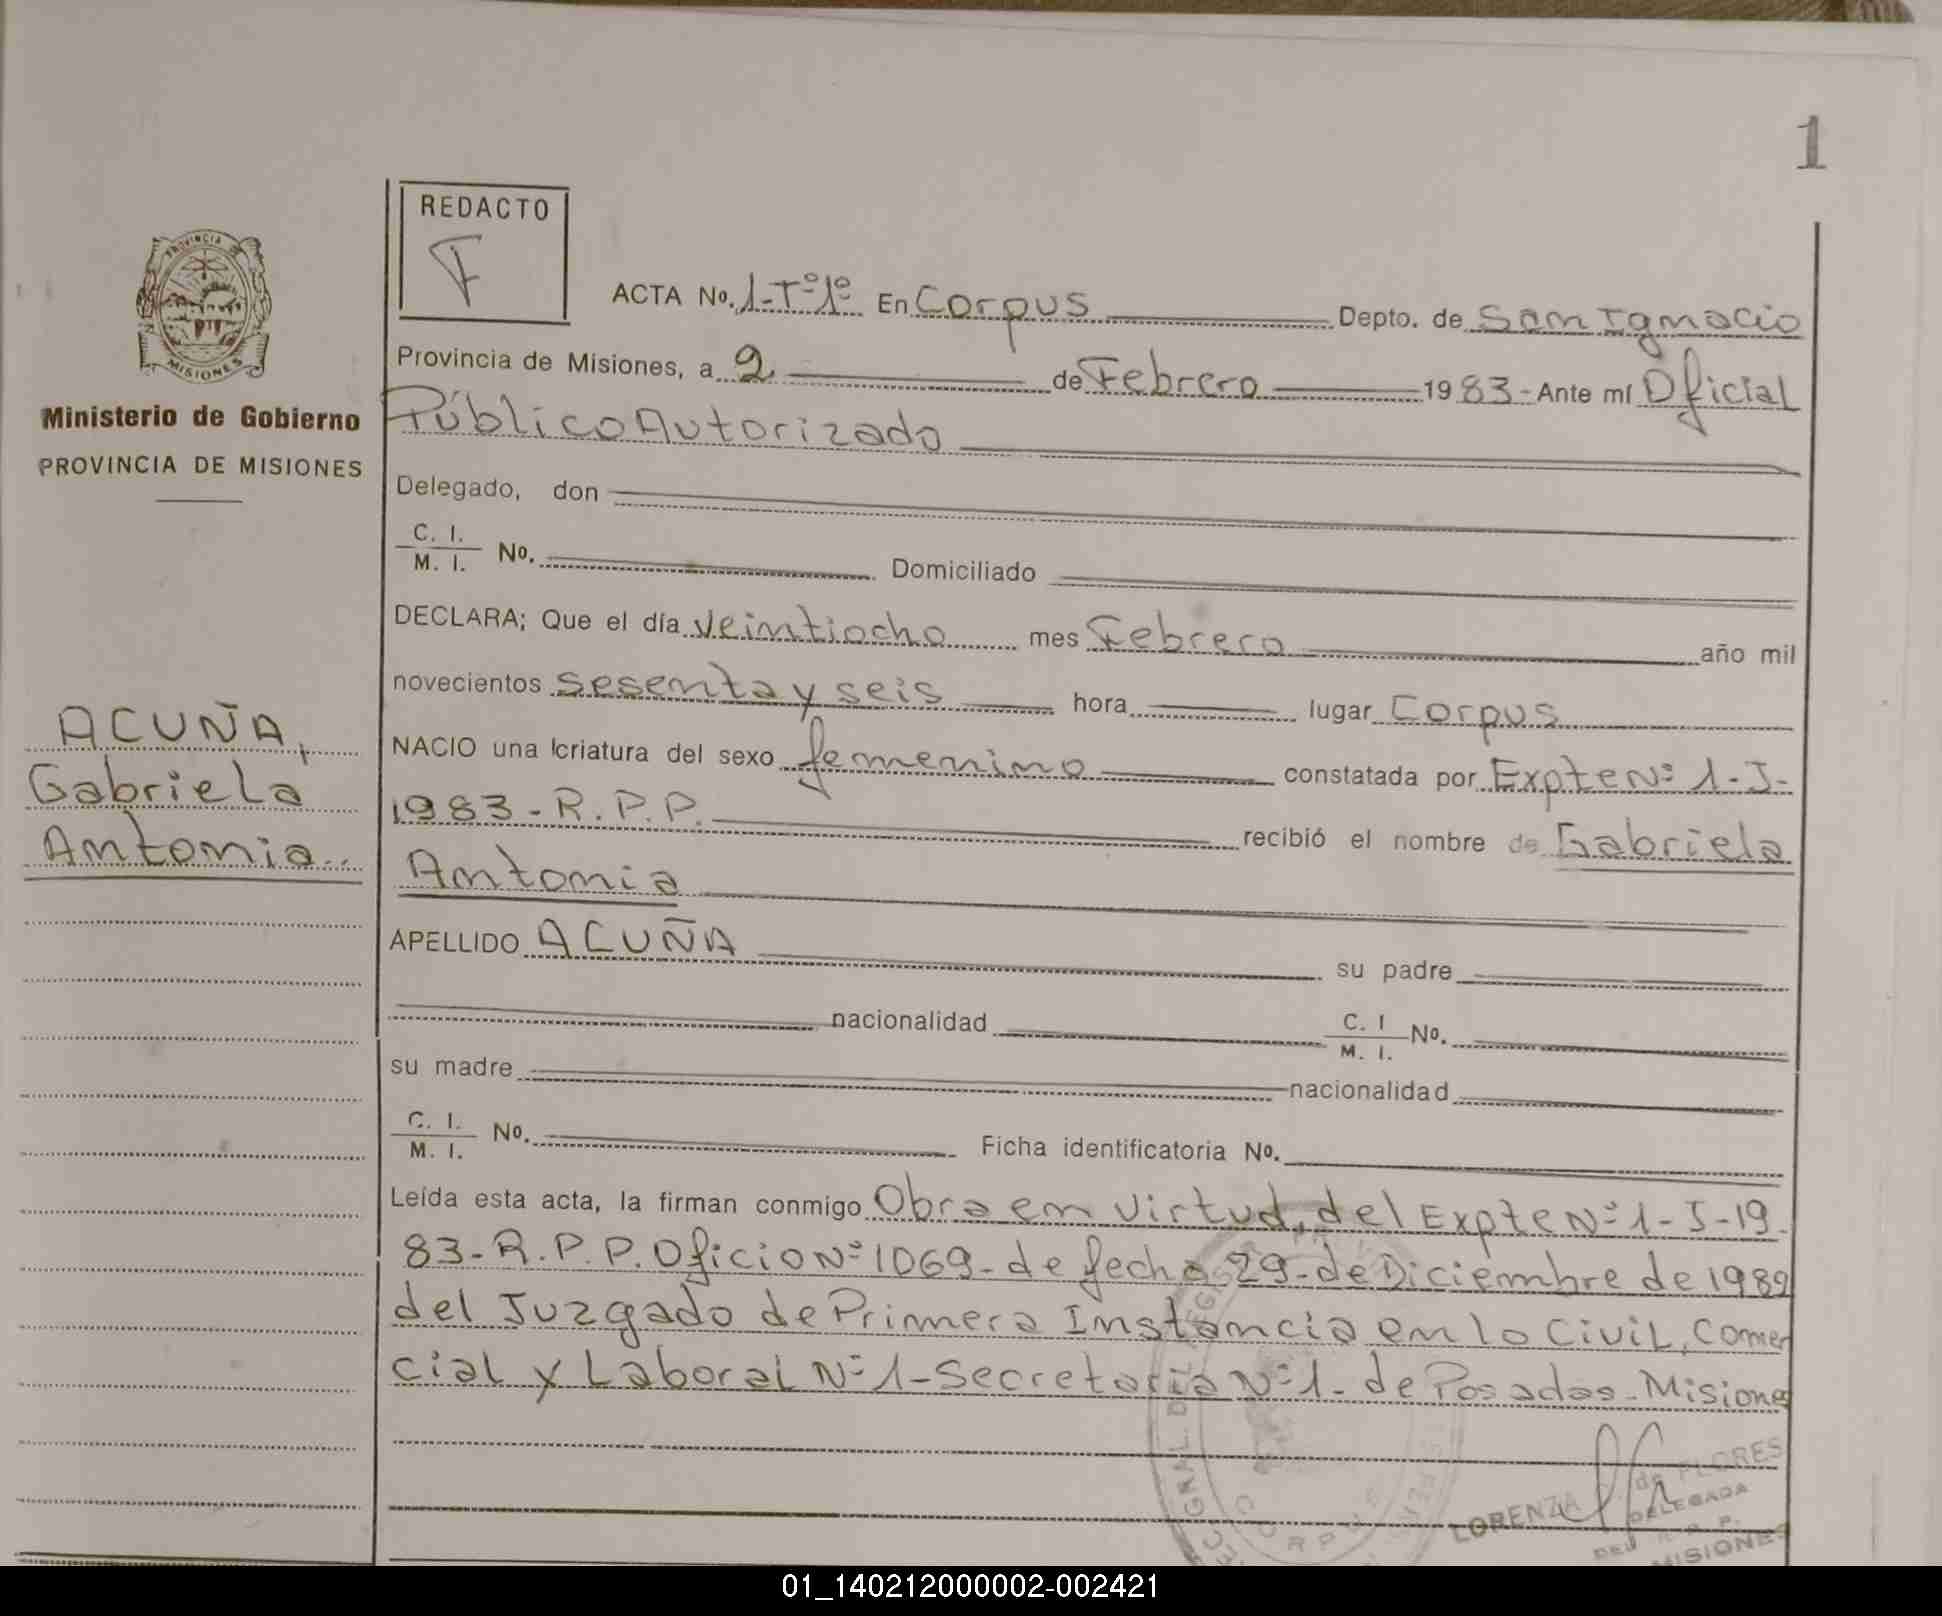 1
REDACTO
F
PROVINCIA DE
MISIONES
Ministerio de Gobierno
PROVINCIA DE MISIONES
ACUÑA,
Gabriela
Antonia
ACTA No. 1-Tº1º En Corpus Depto. de San Ignacio
Provincia de Misiones, a 2 de Febrero 1983- Ante mí Oficial
Público Autorizado
Delegado, don
C. I. M. I. No. Domiciliado
DECLARA; Que el día veintiocho mes Febrero año mil
novecientos sesenta y seis hora lugar Corpus
NACIO una criatura del sexo femenino constatada por Expte Nº 1-J-
1983-R.P.P. recibió el nombre de Gabriela
Antonia
APELLIDO ACUÑA su padre
nacionalidad C. I M. I. No.
su madre nacionalidad
C. I. M. I. No. Ficha identificatoria No.
Leída esta acta, la firman conmigo Obra en virtud, del Expte Nº 1-J-19
83-R.P.P. Oficio Nº 1069-de fecha 29-de Diciembre de 1982
del Juzgado de Primera Instancia en lo Civil, Comer
cial y Laboral Nº 1-Secretaría Nº 1-de Posadas-Misiones
CORPUS
LORENZA de FLORES
DELEGADA
DEL R. P. P.
MISIONES
01_140212000002-002421